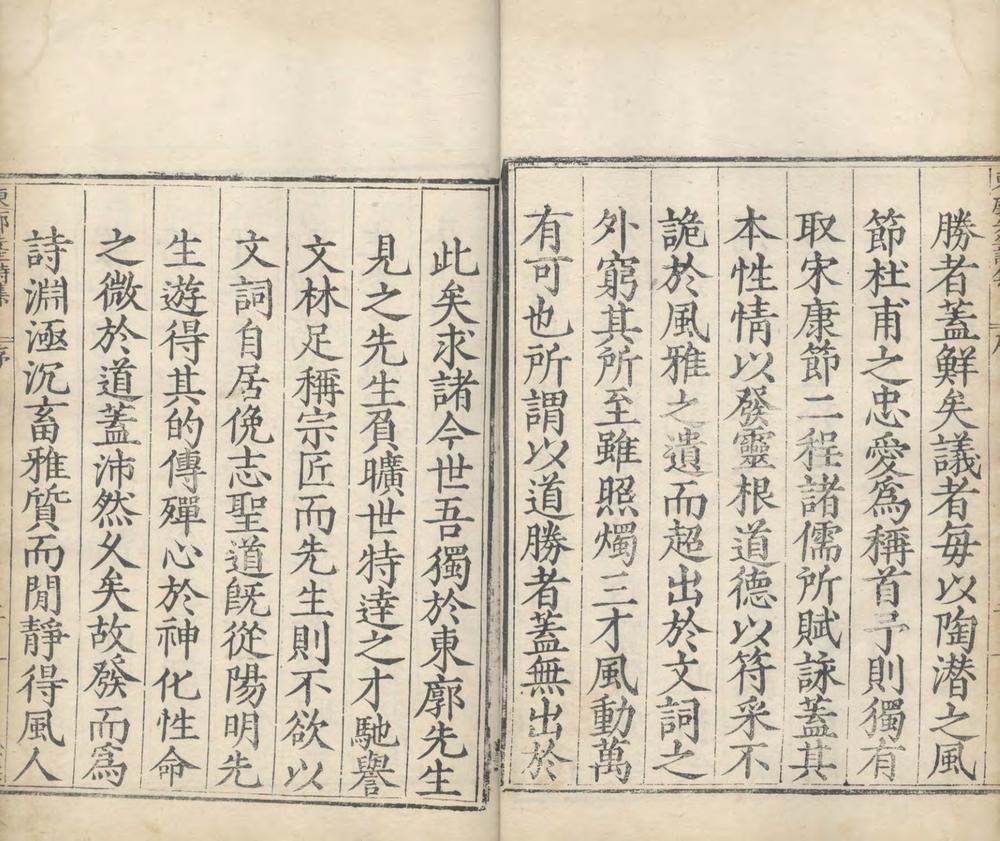 勝者蓋鮮矣議者每以陶潜之風
節杜甫之忠愛爲稱首予則獨有
取宋康節二程諸儒所賦詠蓋其
本性情以發靈根道德以符采不
詭於風雅之遺而超出於文詞之
外窮其所至雖照燭三才風動萬
有可也所謂以道勝者蓋無出於
此矣求諸今世吾獨於東廓先生
見之先生負曠世特逹之才馳譽
文林足稱宗匠而先生則不欲以
文詞自居俛志聖道旣從陽明先
生遊得其的傳殫心於神化性命
之微於道蓋沛然久矣故發而爲
詩淵𣷹沉畜雅質而閒靜得風人
序